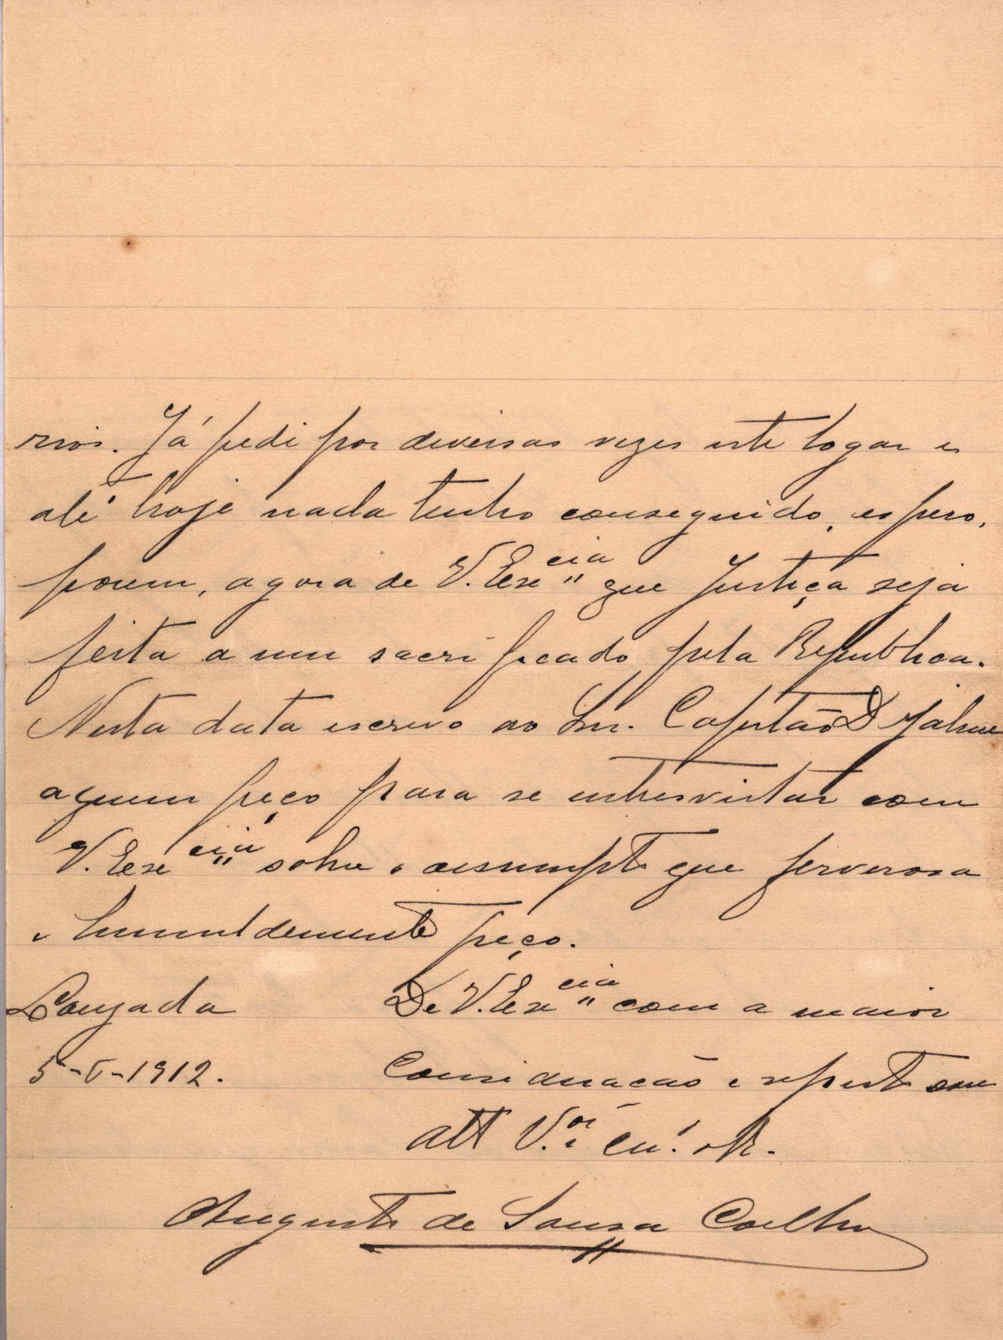 rios. Já pedi por diversas vezes este logar e
até hoje nada tenho conseguido, espero,
porem, agora de V. Exe cia que Justiça seja
feita a um sacrificado pela Republica.
Nesta data escrevo ao Snr. Capitão Djalme
a quem peço para se entrevistar com
V. Exe cia sobre o assumpto que fervorosa
e humildemente peço.
Louzada De V. Exe cia com a maior
5-5-1912. Consideração e respeito sou
Att V.or
Augusto de Sousa Coelho